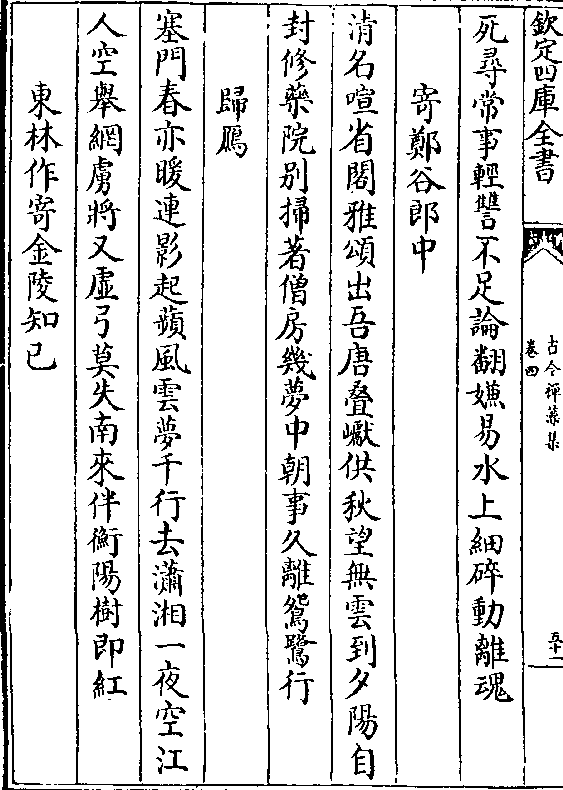 欽定四庫全書
古今禪藻集
卷四
五十一
死尋常事輕讐不足論翻嫌易水上細碎動離魂
寄鄭谷郎中
清名喧省閣雅頌出吾唐疊巘供秋望無雲到夕陽自
封修藥院別掃著僧房幾夢中朝事久離鴛鷺行
歸鴈
塞門春亦暖連影起蘋風雲夢千行去瀟湘一夜空江
人空舉網虜將又虛弓莫失南來伴衡陽樹即紅
東林作寄金陵知已